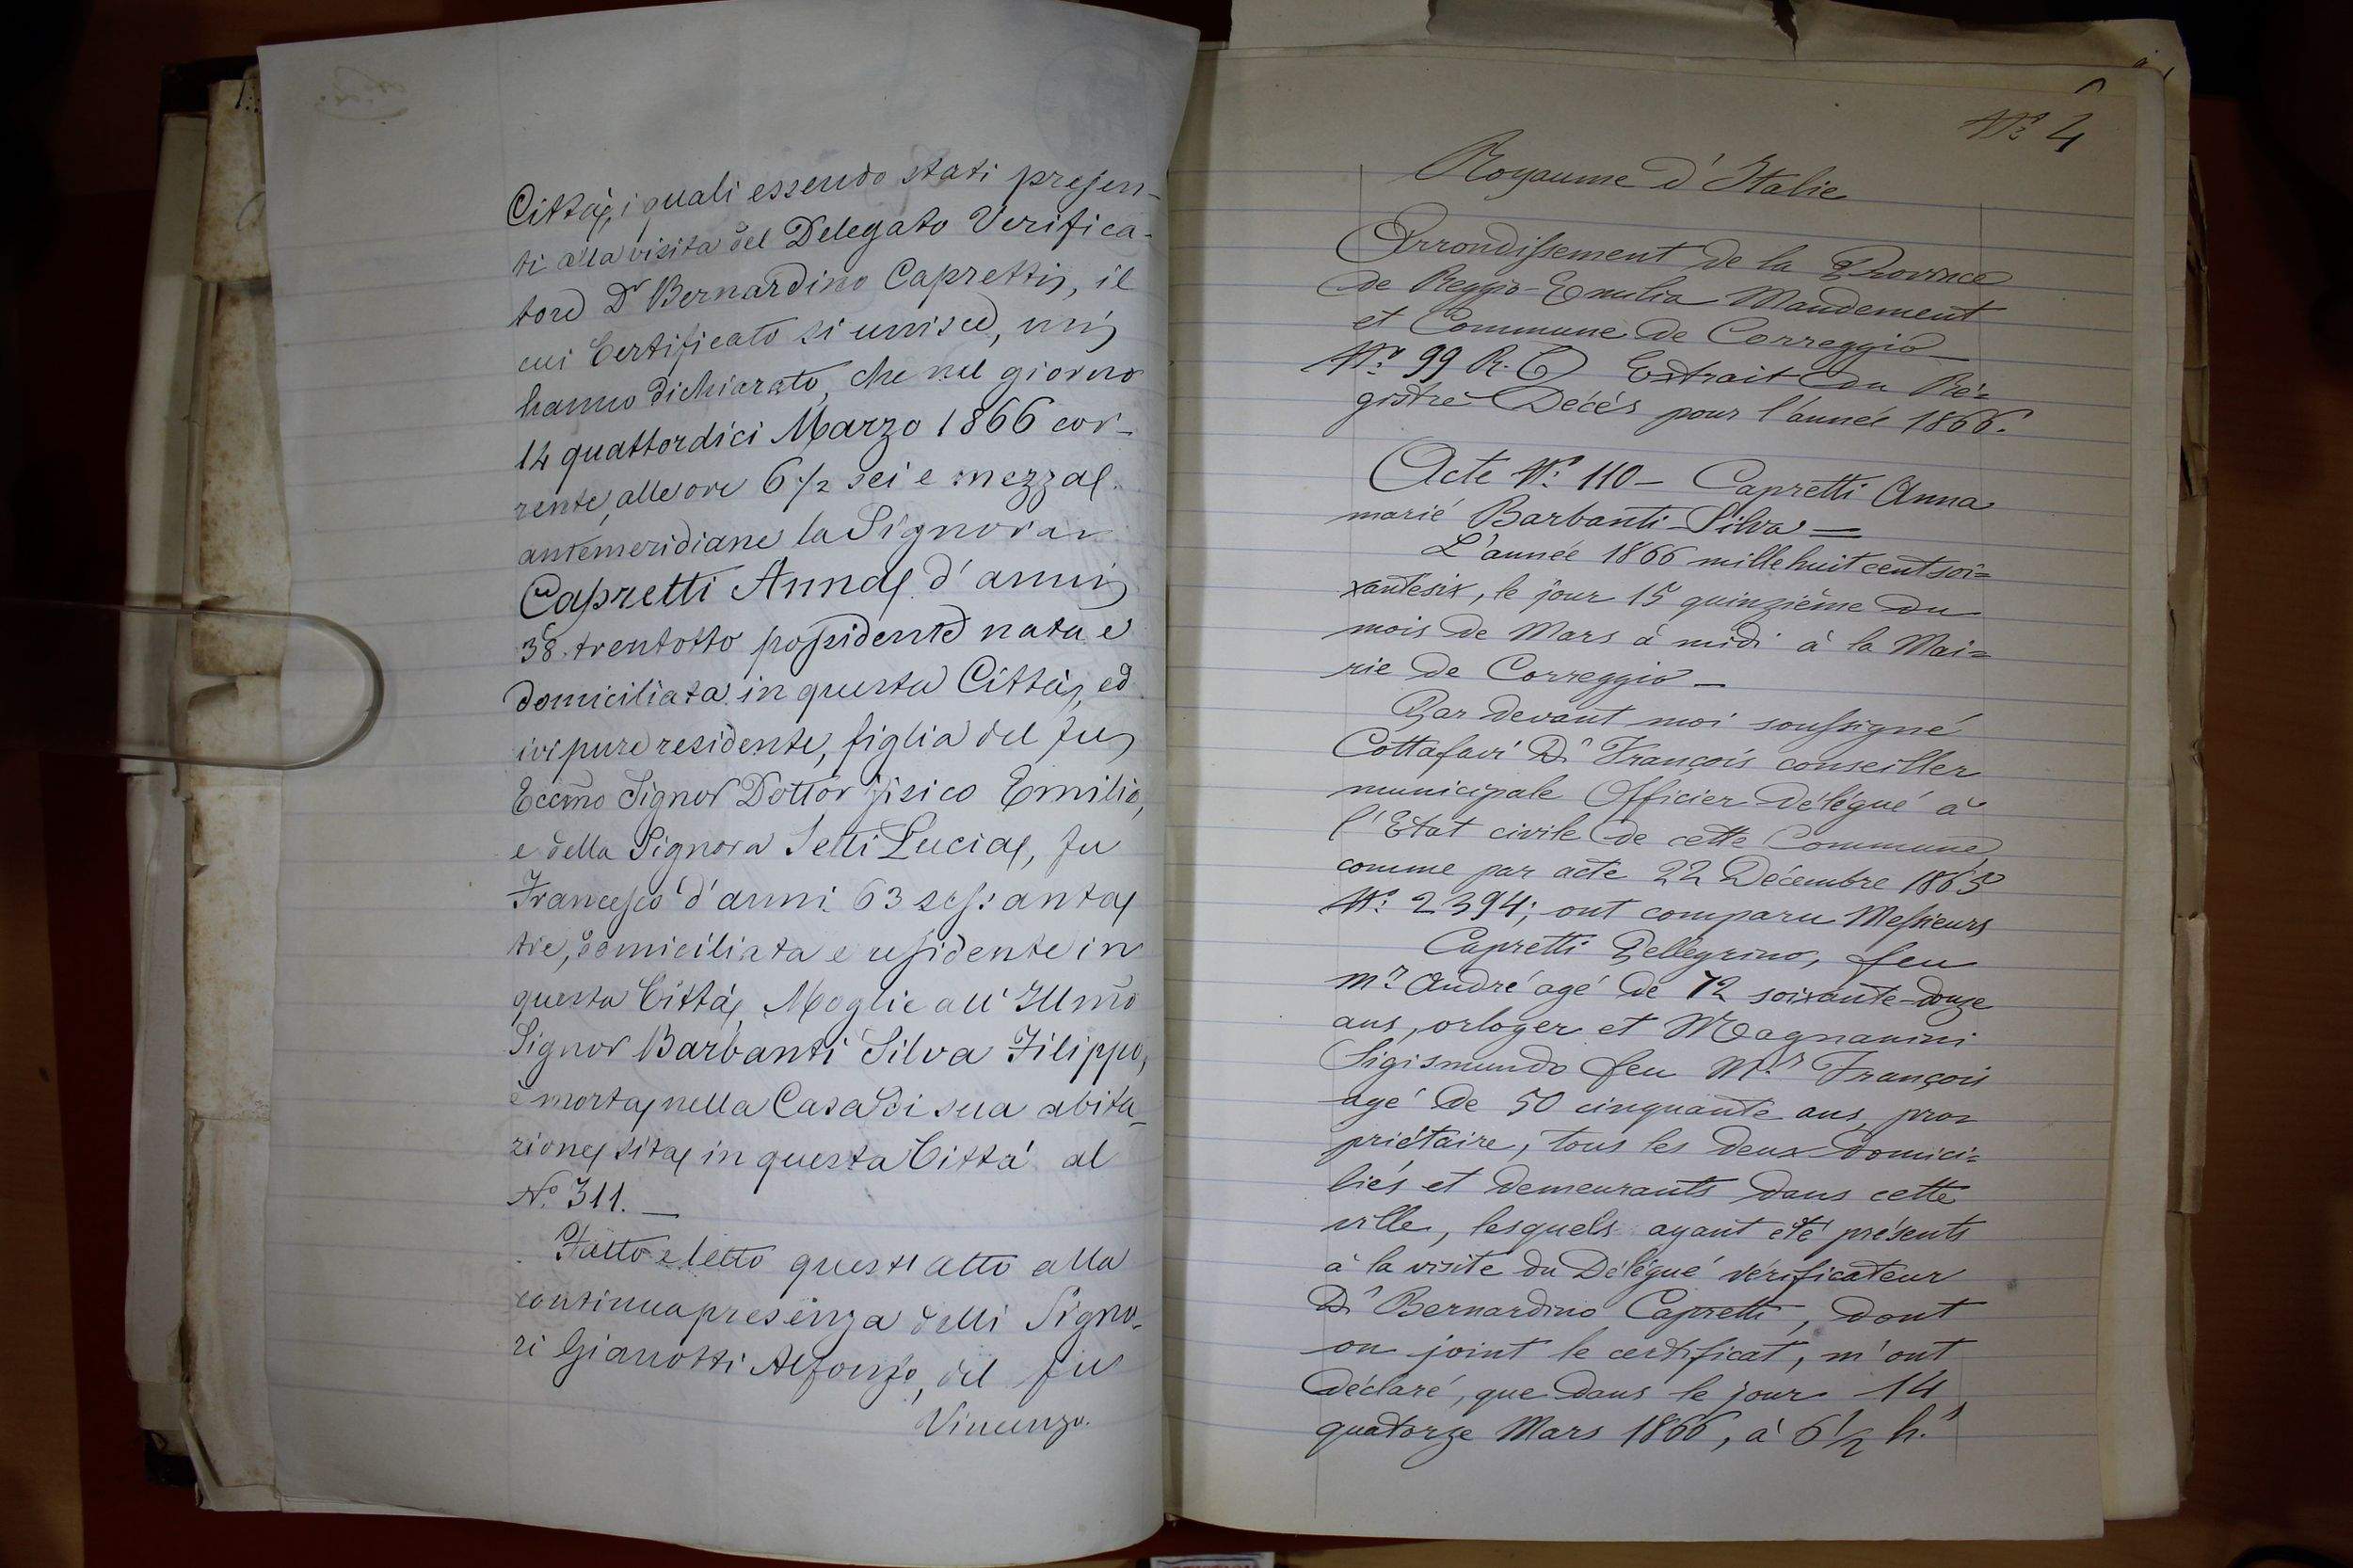 Città, i quali essendo stati presen-
ti alla visita del Delegato Verifica-
tore Dr Bernardino Capretti, il
cui Certificato si unisce, mi
hanno dichiarato, che nel giorno
14 quattordici Marzo 1866 cor-
rente, alle ore 6 1/2 sei e mezza
antemeridiane la Signora
Capretti Anna d'anni
38 trentotto possidente nata e
domiciliata in questa Città, ed
ivi pure residente, figlia del fu
Eccmo Signor Dottor fisico Emilio,
e della Signora Setti Lucia, fu
Francesco d'anni 63 sessanta
tre, domiciliata e residente in
questa Città, Moglie all'Illmo
Signor Barbanti Silva Filippo,
è morta nella Casa di sua abita-
zione sita in questa Città al
No 311. —
Fatto e letto quest'atto alla
continua presenza delli Signo-
ri Gianotti Alfonso, del fu
Vincenzo.
No 4
Royaume d'Italie
Arrondissement de la Province
de Reggio-Emilia Mandement
et Commune de Correggio —
No 99 R. C) Extrait du Ré=
gistre Décés pour l'année 1866.
Acte No 110 — Capretti Anna
marié Barbanti-Silva =
L'année 1866 mille huit cent soi=
xantesix, le jour 15 quinzième du
mois de Mars à midi à la Mai=
rie de Correggio —
Par devant moi soussigné
Cottafavi Dr François conseiller
municipale Officier délégué à
l'Etat civile de cette Commune
comme par acte 22 Décembre 1865
No 2394; ont comparu Messieurs
Capretti Pellegrino, feu
Mr André agé de 72 soixante-douze
ans, orloger et Magnanini
Sigismundo feu Mr François
agé de 50 cinquante ans, pro=
priétaire, tous les deux domici=
liés et demeurants dans cette
ville, lesquels ayant été présents
à la visite du Délégué vérificateur
Dr Bernardino Capretti, dont
on joint le certificat, m'ont
déclaré, que dans le jour 14
quatorze Mars 1866, à 6 1/2 h.s